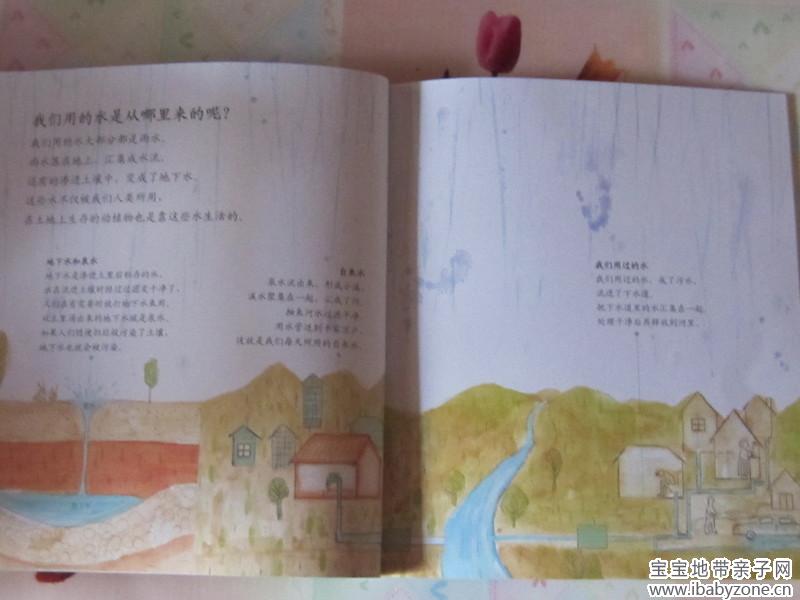 我们用的水是从哪里来的呢？
我们用的水大部分都是雨水。
雨水落在地上，汇集成水流，
还有的渗进土壤中，变成了地下水。
这些水不仅被我们人类所用，
在土地上生存的动植物也是靠这些水生活的。
地下水和泉水
地下水是渗进土里后积存的水。
水在流进土壤时经过过滤变干净了，
人们在有需要时抽打地下水来用。
从土里涌出来的地下水就是泉水。
如果人们随便扔垃圾污染了土壤，
地下水也就会被污染。
自来水
泉水流出来，形成小溪，
溪水聚集在一起，汇成了河。
抽来河水过滤干净，
用水管送到千家万户，
这就是我们每天所用的自来水。
我们用过的水
我们用过的水，成了污水，
流进了下水道。
把下水道里的水汇集在一起，
处理干净后再排放到河里。
宝宝地带亲子网
www.ibabyzone.cn